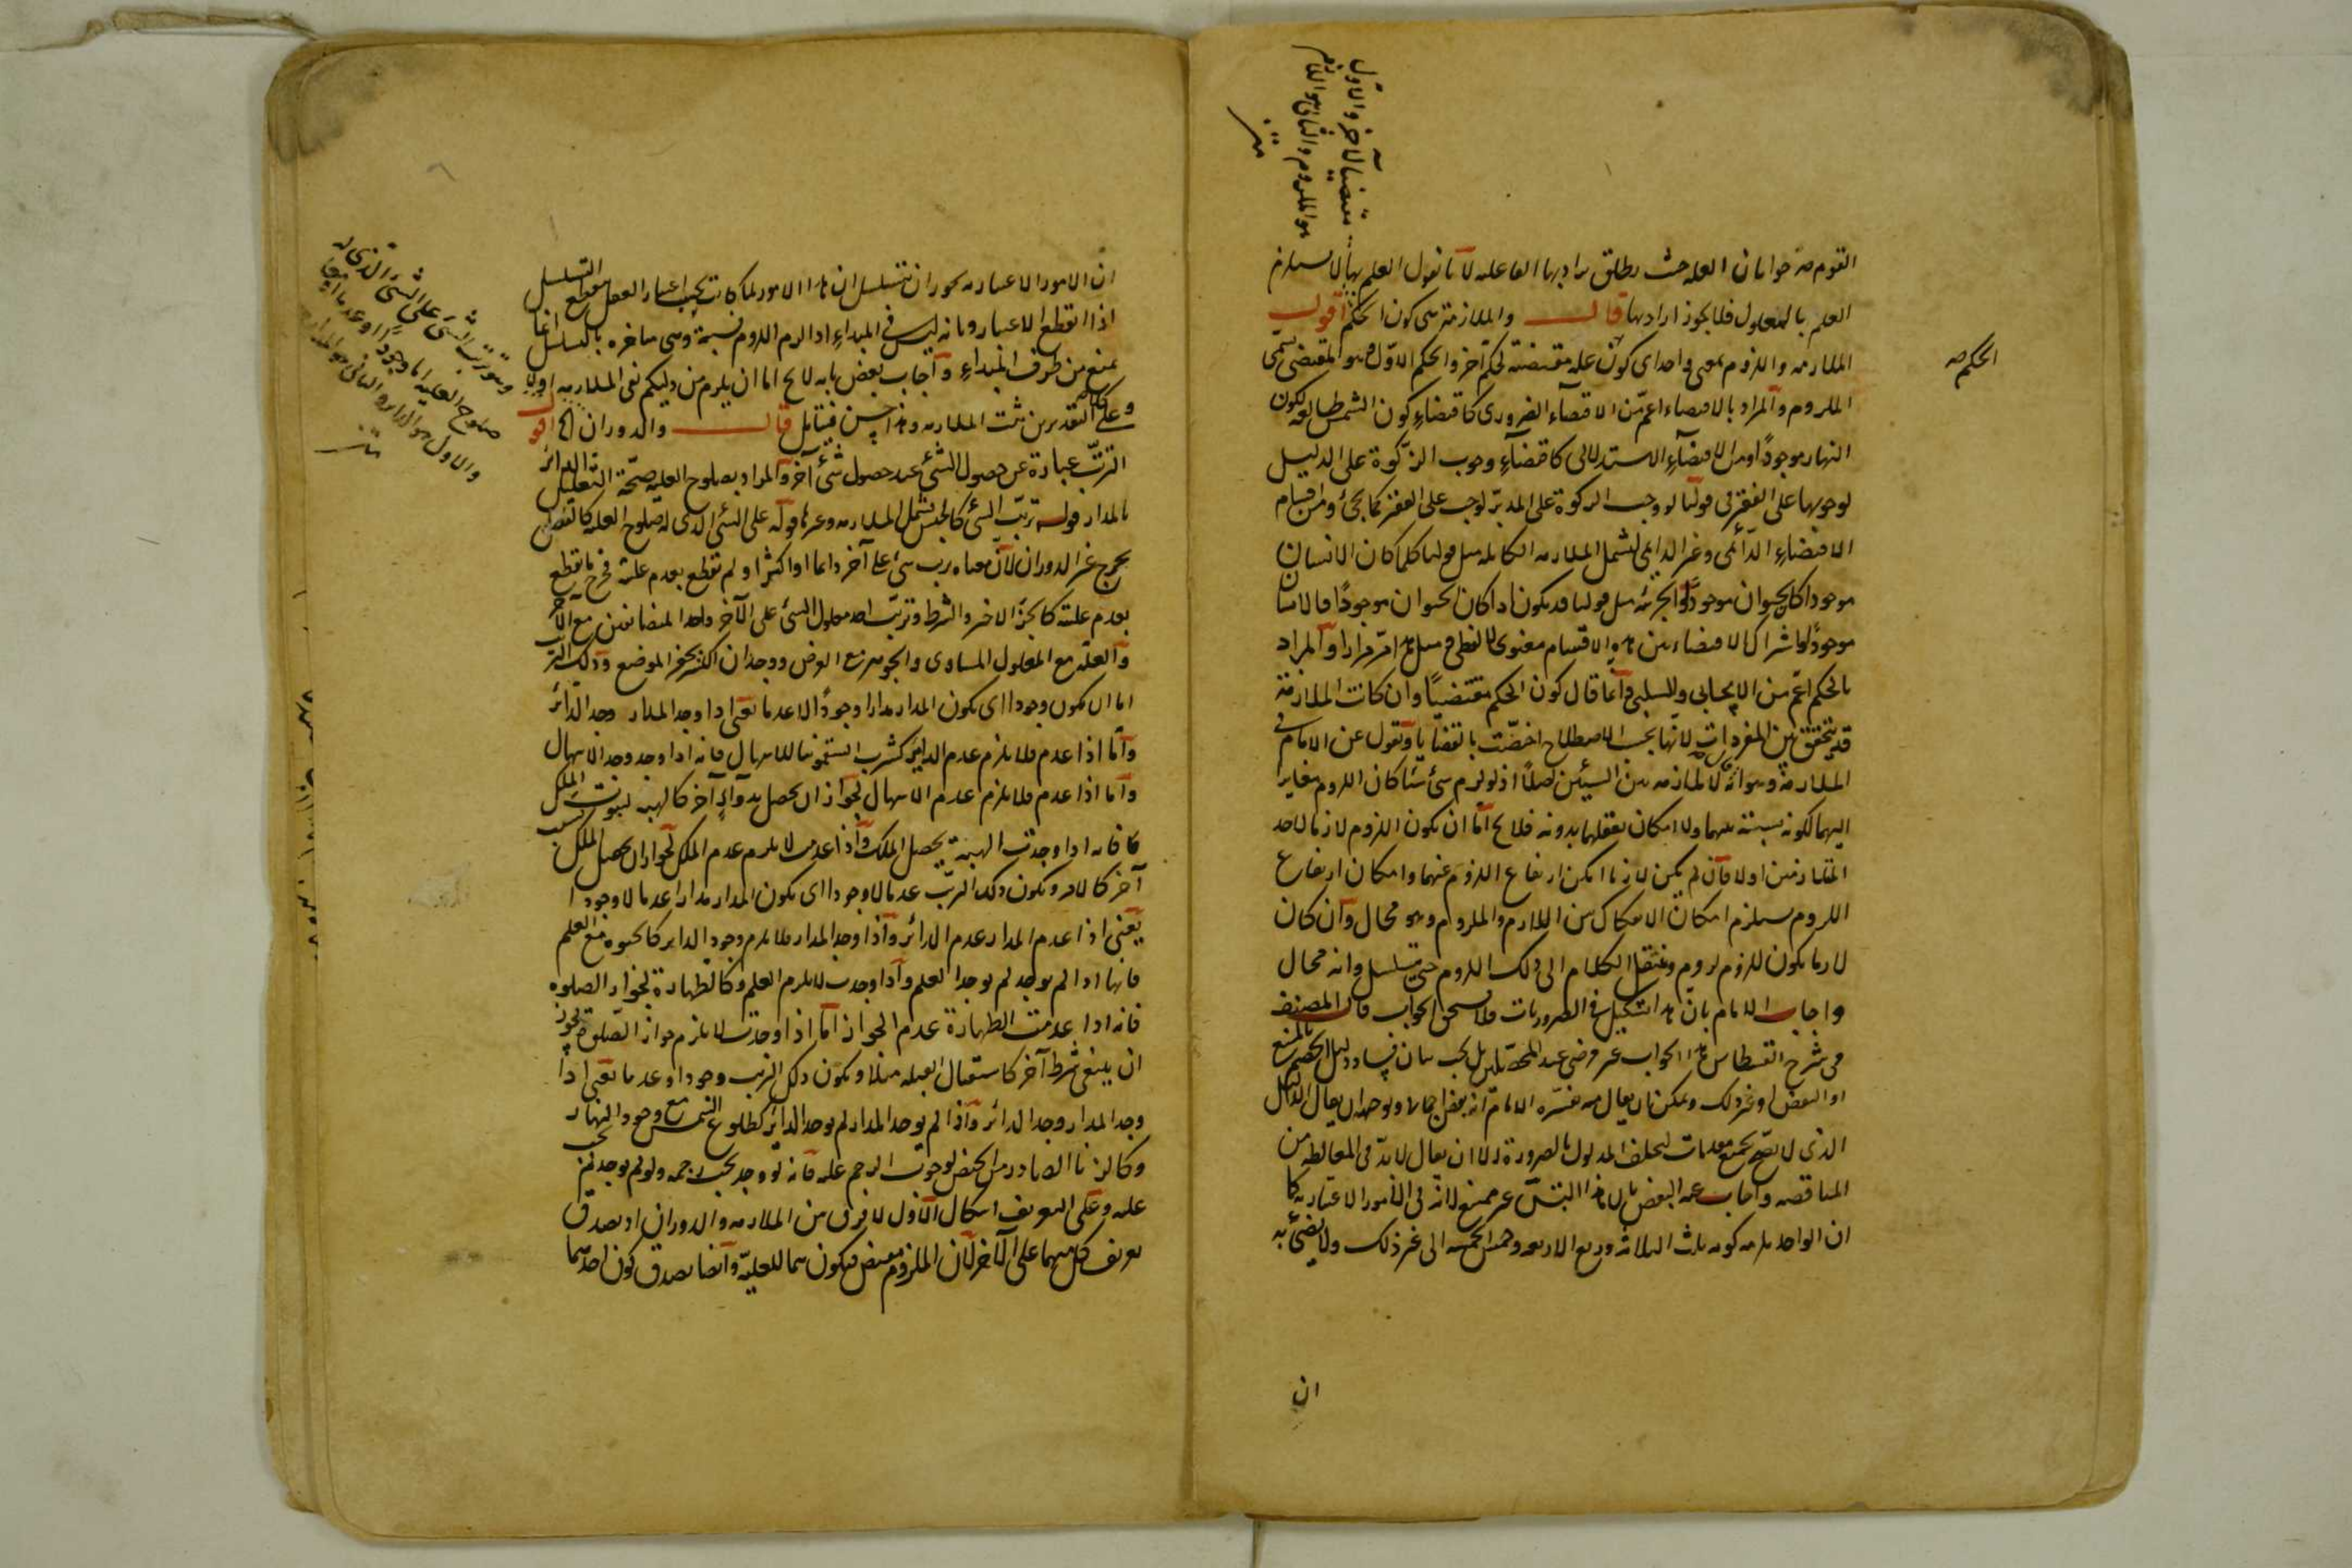 القوم صرحوا بان العلة حيث يطلق يراد بها الفاعلية لانا نقول العلم بها لا يستلزم
العلم بالمعلول فلا يجوز ارادتها قال والملازمة هي كون الحكم اقول
الملازمة واللزوم بمعنى واحد اى كون علة مقتضية لحكم آخر والحكم الاول وهو المقتضى يسمى
الملزوم والمراد بالاقتضاء اعم من الاقتضاء الضرورى كاقتضاء كون الشمس طالعة لكون
النهار موجودًا ومن الاقتضاء الاستدلالى كاقتضاء وجوب الزكوة على الدليل
لوجوبها على الفقير فى قولنا لو وجب الزكوة على المديون لوجب على الفقير كما يجئ ومن اقسام
الاقتضاء الدائمى وغير الدائمى ليشمل الملازمة الكلية مثل قولنا كلما كان الانسان
موجودا كان الحيوان موجودًا والجزئية مثل قولنا قد يكون اذا كان الحيوان موجودًا فالانسان
موجودًا واشتراك الاقتضاء بين هذه الاقسام معنوى لا لفظى مثل ما مر مرارا والمراد
بالحكم اعم من الايجابى والسلبى وانما قال كون الحكم مقتضيًا وان كانت الملازمة
قد يتحقق بين المفردات لانها بحسب الاصطلاح اختصت بالقضايا ونقول عن الامام فى
الملازمة وهو انه لا ملازمة بين الشيئين اصلًا اذ لو لزم شئ شيئا كان اللزوم مغايرا
اليهما لكونه نسبة بينهما ولامكان تعقلهما بدونه فلا يخ اما ان يكون اللزوم لازما لاحد
المتلازمين اولا فان لم يكن لازما امكن ارتفاع اللزوم عنهما وامكان ارتفاع
اللزوم يستلزم امكان الانفكاك بين اللازم والملزوم وهو محال وان كان
لازما يكون للزوم لزوم وننقل الكلام الى ذلك اللزوم حتى يتسلسل وانه محال
واجاب الامام بان هذا تشكيك فى الضروريات فلا يستحق الجواب قال المصنف
فى شرح القسطاس هذا الجواب غير مرضى عند المحصلين بل يجب بيان فساد دليل الخصم بالمنع
او النقض او غير ذلك ويمكن ان يقال الدليل
الذى لا يصح بجميع مقدماته لتخلف المدلول بالضرورة الا ان يقال لابد فى المغالطة من
المناقضة واجاب عنه البعض بان هذا التسلسل غير ممتنع لانه فى الامور الاعتبارية كما
ان الواحد يلزمه كونه ثلث الثلاثة وربع الاربعة وخمس الخمسة الى غير ذلك ولا يضئ به
ان
الحكم صه
مقتضيا لآخر والاول
هو الملزوم والثانى هو اللازم
متن
ان الامور الاعتبارية يجوز ان تتسلسل لان هذا الامور لما كانت بحسب اعتبار العقل ينقطع التسلسل
اذا انقطع الاعتبار وبانه ليس فى المبداء اذ اللزوم نسبة وهى متأخرة بالتسلسل انما
يمنع من طرف المبداء واجاب بعض بانه لا يخ اما ان يلزم من دليلكم نفى الملازمة اولا
وعلى كلا التقديرين ثبت الملازمة وهذا حسن فتأمل قال والدوران الخ اقول
الترتب عبارة عن حصول الشئ عند حصول شئ آخر والمراد بصلوح العلية صحة التعليل
بالمدار قوله ترتب الشئ كالجنس يشمل الملازمة وغيرها وقوله على الشئ الذى له صلوح العلية كالفصل
يخرج غير الدوران لان معناه ترتب شئ على آخر دائما او اكثرا ولم نقطع بعدم علته فخرج ما نقطع
بعدم علته كالجزء الاخير والشرط وترتب احد معلولى الشئ على الآخر واحد المتضايفين مع الآخر
والعلة مع المعلول المساوى والجوهر مع العرض ووجدان وذلك الترتب
اما ان يكون وجودا اى يكون المدار مدارا وجودًا لا عدما يعنى اذا وجد المدار وجد الدائر
واما اذا عدم فلا يلزم عدم الدائر كشرب السقمونيا للاسهال فانه اذا وجد وجد الاسهال
واما اذا عدم فلا يلزم عدم الاسهال لجواز ان يحصل بدواء آخر كالهبة لثبوت الملك
فانه اذا وجدت الهبة يحصل الملك واذا عدمت لا يلزم عدم الملك لجواز ان يحصل الملك بسبب
آخر ويكون ذلك الترتب عدما لا وجودا اى يكون المدار مدارا عدما لا وجودا
يعنى اذا عدم المدار عدم الدائر واذا وجد المدار فلا يلزم وجود الدائر كالحيوة مع العلم
فانها اذا لم يوجد لم يوجد العلم واذا وجدت لا يلزم العلم وكالطهارة لجواز الصلوة
فانه اذا عدمت الطهارة عدم الجواز اما اذا وجدت لا يلزم جواز الصلوة لجواز
ان ينتفى شرط آخر كاستقبال القبلة مثلا ويكون ذلك الترتب وجودا وعدما يعنى اذا
وجد المدار وجد الدائر واذا لم يوجد المدار لم يوجد الدائر كطلوع الشمس مع وجود النهار
وكالزنا الصادر من المحصن لوجوب الرجم عليه فانه لو وجد يجب رجمه ولو لم يوجد لم يجب
عليه وعلى التعريف اشكال الاول لا فرق بين الملازمة والدوران اذ يصدق
تعريف كل منهما على الآخر لان الملزوم مقتض فيكون صالحا للعلية وايضا يصدق كون احدهما
وهو ترتب الشئ على الشئ الذى له
صلوح العلية اما وجودًا او عدما او معا
والاول هو الدائر والثانى هو المدار
متن